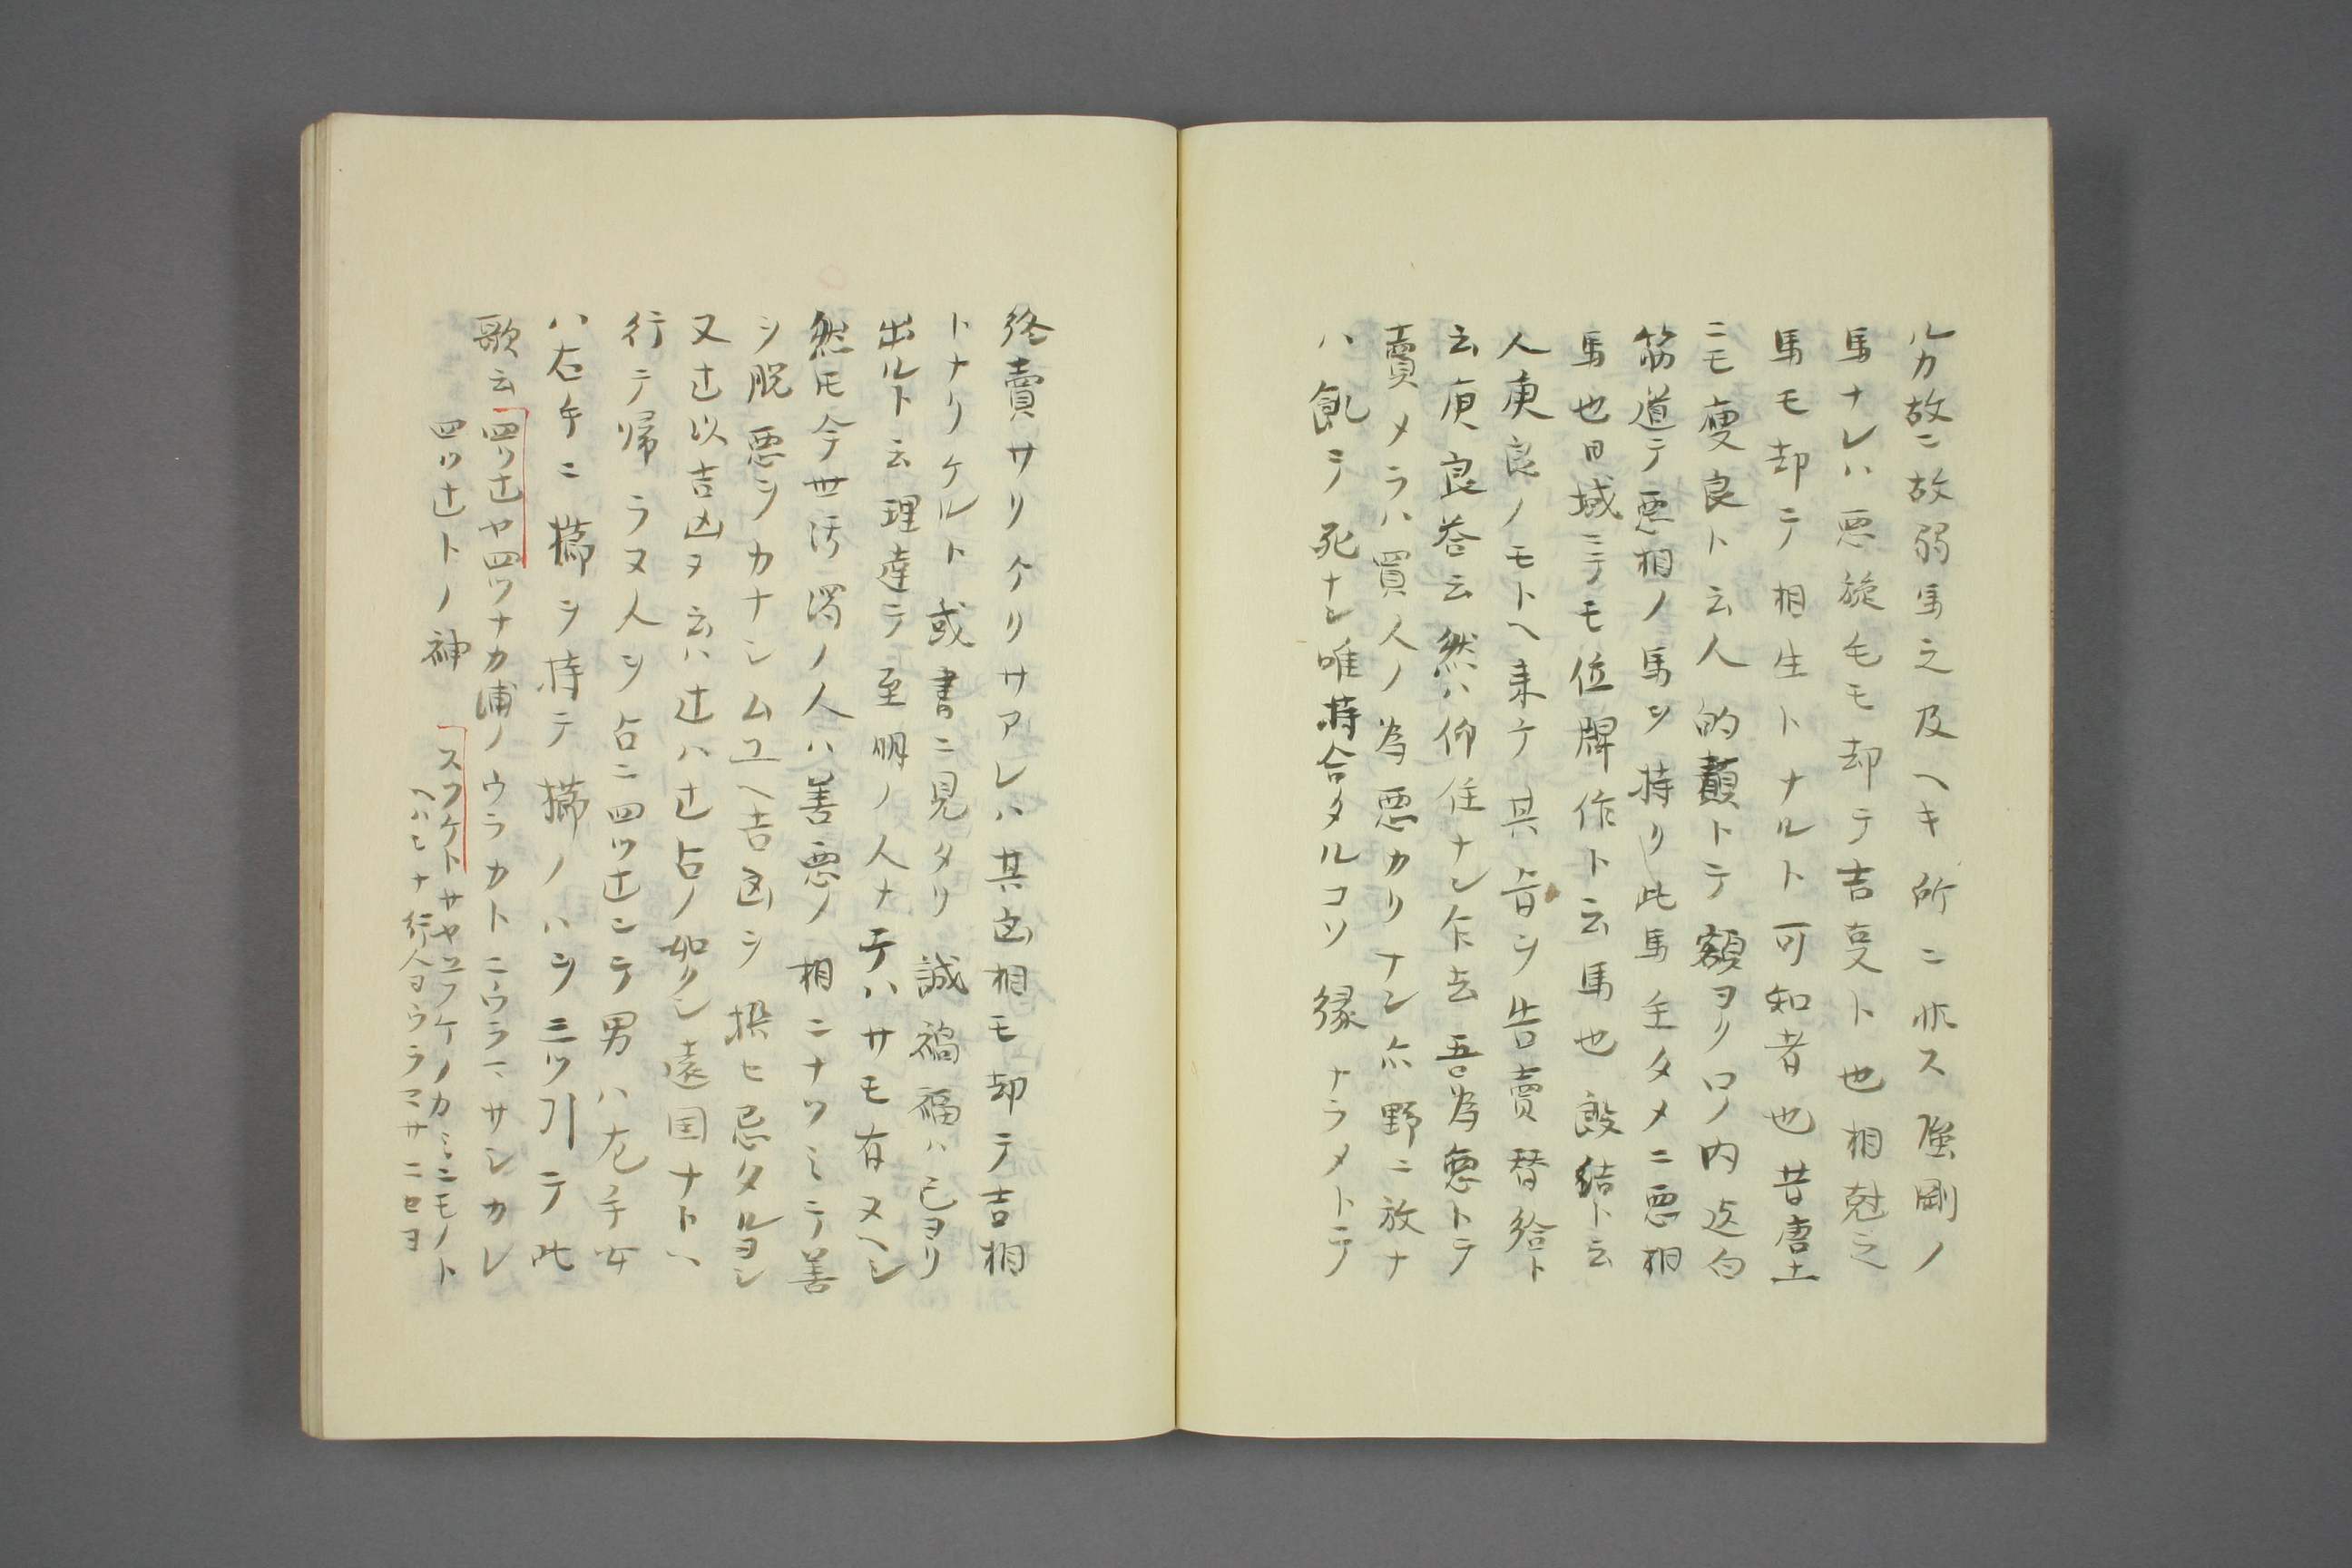 ルカ故ニ故弱馬之及ヘキ所ニ非ス強剛ノ
馬ナレハ悪旋毛モ却テ吉叓ト也相尅之
馬モ却テ相生トナルト可知者也昔唐土
ニモ庾良ト云人的顱トテ額ヨリ口ノ内迠白
筋道テ悪相ノ馬ヲ持リ此馬主タメニ悪相
馬也日域ニテモ位牌作ト云馬也殷結ト云
人庾良ノモトヘ来テ其旨ヲ告賣替給ト
云庾良答云然ハ仰任ナン乍去吾為悪トテ
賣メラハ買人ノ為悪カリナン尓野ニ放ナ
ハ飢テ死ナン唯持合タルコソ縁ナラメトテ
終賣サリケリサアレハ其凶相モ却テ吉相
トナリケルト或書ニ見タリ誠禍福ハ己ヨリ
出ルト云理達テ至明ノ人ナテハサモ有ヌヘシ
然モ今世汚濁ノ人ハ善悪ノ相ニナツミテ善
ヲ脱悪ヲカナシムユヘ吉凶ヲ撰ヒ忌タルヨシ
又辻以吉凶ヲ云ハ辻ハ辻占ノ如クシ遠国ナトハ
行テ帰ラヌ人ヲ占ニ四ツ辻ニテ男ハ左手女
ハ右手ニ櫛ヲ持テ櫛ノハヲ三ツ引テ此
歌云四ツ辻ヤ四ツナカ浦ノウラカトニウラマサシカレ
四ツ辻トノ神
スフケトサヤユフケノカミニモノト
ヘハミナ行人ヨウラマサニセヨ